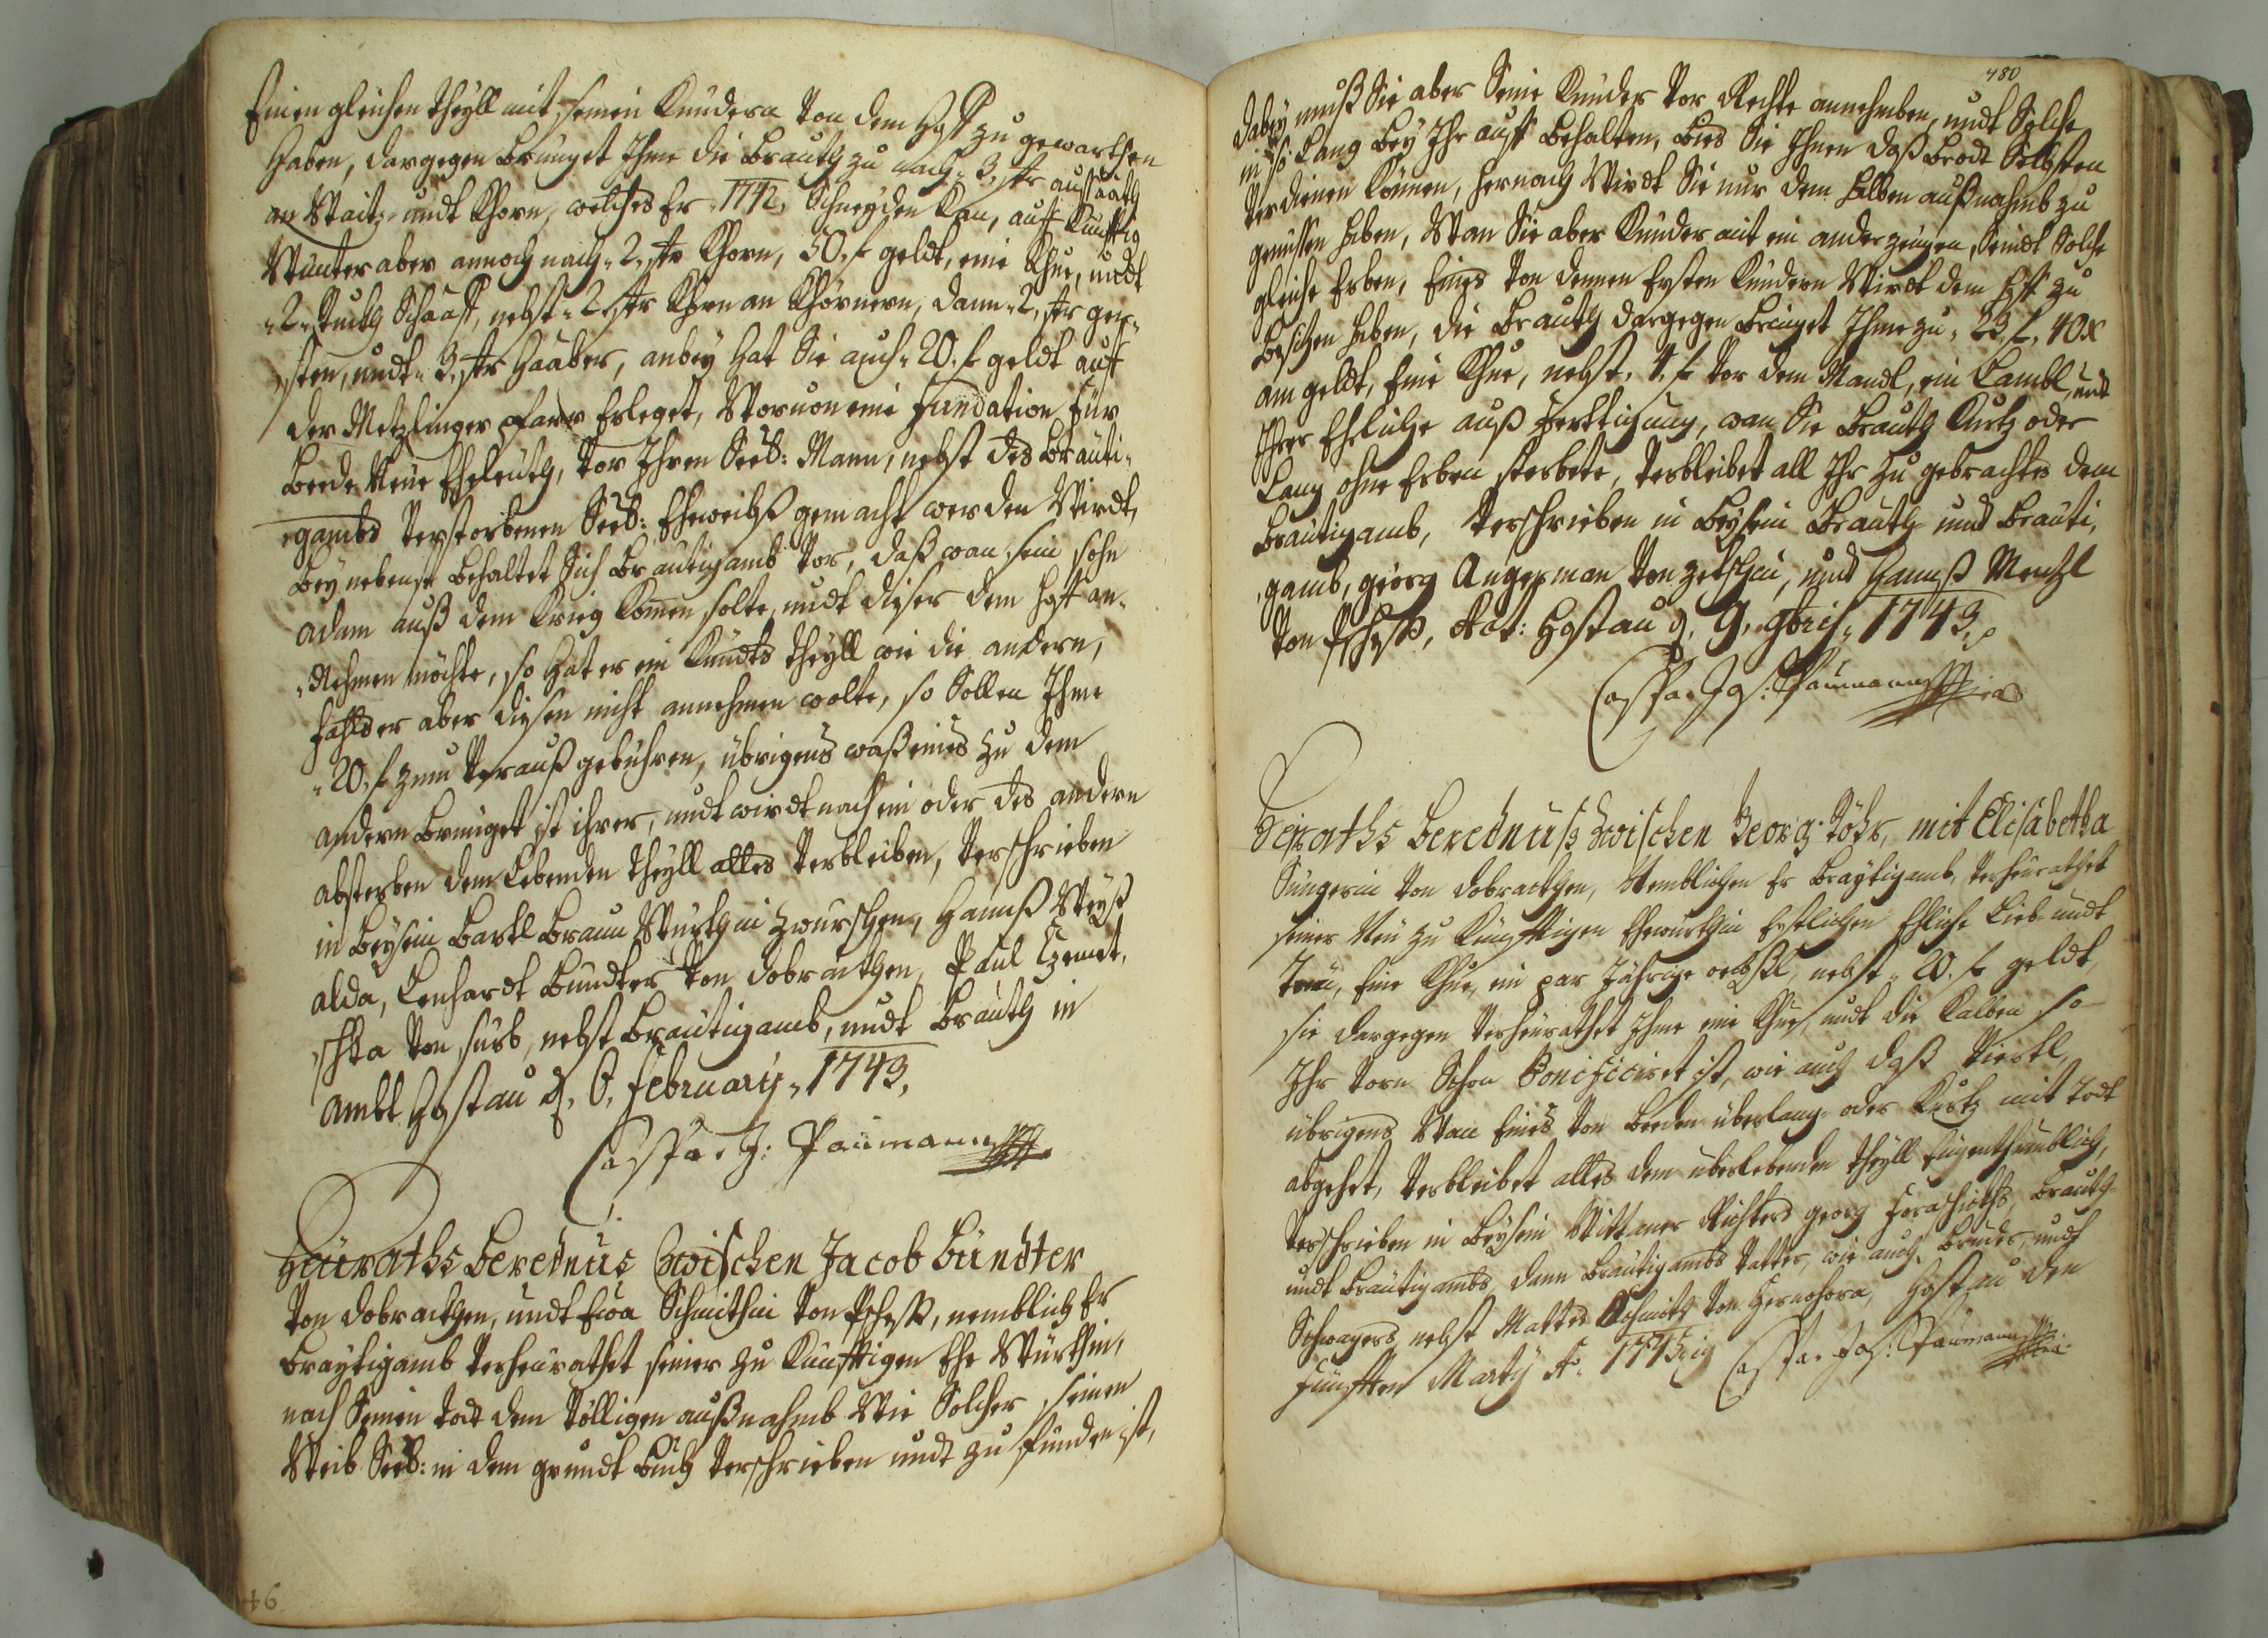 Einen gleichen theyll mit seinen Kündern von dem Hoff zu gewarthen
Haben, dargegen bringet Ihme die brauth zu nach 3. str aussaath
an Waitz undt Khorn, welches Er 1742. Schneyden Kan, auff Künfftig
Wünter aber annoch nach 2. str Khorn, 50. f geldt, eine Khue, undt
2 Stückh Schaaff, nebst 2 str Khorn an Khörnern, dann 2. str ger-
sten, undt 3. str Haaber, anbey Hat Sie auch 20. f geldt auff
der Metzlinger pfarr Erleget, Woruon eine fundation für
beede Neue Eheleuth, vor Ihren Seel: Mann, nebst des bräuti-
gambs verstorbenen Seel: Eheweibß gemacht werden Wirdt,
bey nebenst behaltet Sich bräutigamb vor, daß wan sein sohn
adam auß dem Krieg Komen solte, undt dieser den Hoff an-
Nehmen möchte, so Hat er ein Kündts theyll wie die andern,
fahls er aber diesen nicht annehmen wolte, so Sollen Ihme
20. f zum vorauß gebühren, übrigens waß eines zu dem
andern bringet ist ihrer, undt wirdt nach ein oder des andern
absterben dem Lebenden theyll alles verbleiben, verschrieben
in beysein bartl braun Würth in Zwurschen, Hannß Weyß
alda, Lenhardt bündter von dobrackhen, Paul
schka von surb, nebst bräutigamb, undt brauth in
ambt Hostau d. 6. February 1743.
Caspar J: Paümann
Heüraths berednus Zwischen Jacob bündter
von dobrackhen, undt Ewa Schmithin von, nemblich Er
breytigamb verheürathet seiner zu Künfftigen Ehe Würthin,
nach Seinen todt den völligen außnahmb Wie Solcher seinen
Weib Seel: in dem grundt buch verschrieben undt zu fünden ist,
46
480
dabey muß Sie aber Seine Künder vor Rechte annehmben, undt Solche
in so Lang bey Ihr auff behalten, bies Sie Ihnen daß brodt Selbsten
verdienen Können, hernach Wirdt Sie nur den Halben außnahmb zu
genüssen haben, Wan Sie aber Künder mit ein ander zeügen, Seindt Solche
gleiche Erben, Eines von denen Ersten Kündern Wirdt den Hoff zu
besitzen haben, die brauth dargegen bringet Ihme zu 23 f. 40 x
am geldt, Eine Khue, nebst 4 f vor den Mandl, ein Lambl, undt
Ihrer Ehrliche auß ferttigung, wan Sie brauth Kurtz oder
Lang ohne Erben sterbete, verbleibet all Ihr Zu gebrachtes dem
bräutigamb, verschrieben in beysein brauth und bräuti-
gamb, georg Angerman von, und Hannß Mentzl
von, Act: Hostau d. 9. 9bris 1743.
Caspar Jos: Paümann
Heiraths berednuß Zwischen Georg Röhr, mit Elisabetha
Süngerin von dobrackhen, Nemblichen Er breytigamb, verheürathet
seiner Neu zu Künfftigen Ehewürthin Erstlichen Ehliche Lieb undt
Treü, Eine Khue, ein par Jährige, nebst 20. f geldt,
sie dargegen verheürathet Ihme eine Khue, undt die Kalben so
Ihr vorn Schon Bonificiret ist, wie auch daß Viertl,
übrigens Wan Eines von beeden überlang oder Kurtz mit todt
abgehet, verbleibet alles dem überlebenden theyll Eügenthümblich,
verschrieben in beysein Wittaner Richters georg, brauth
undt bräutigambs, dann bräutigambs vatter, wie auch bruder, undt
Schwagers, nebst Mattes Schmith von Hernohora, Hostau den
fünfften Marty Ao. 1745ig Caspar Jos: Paümann